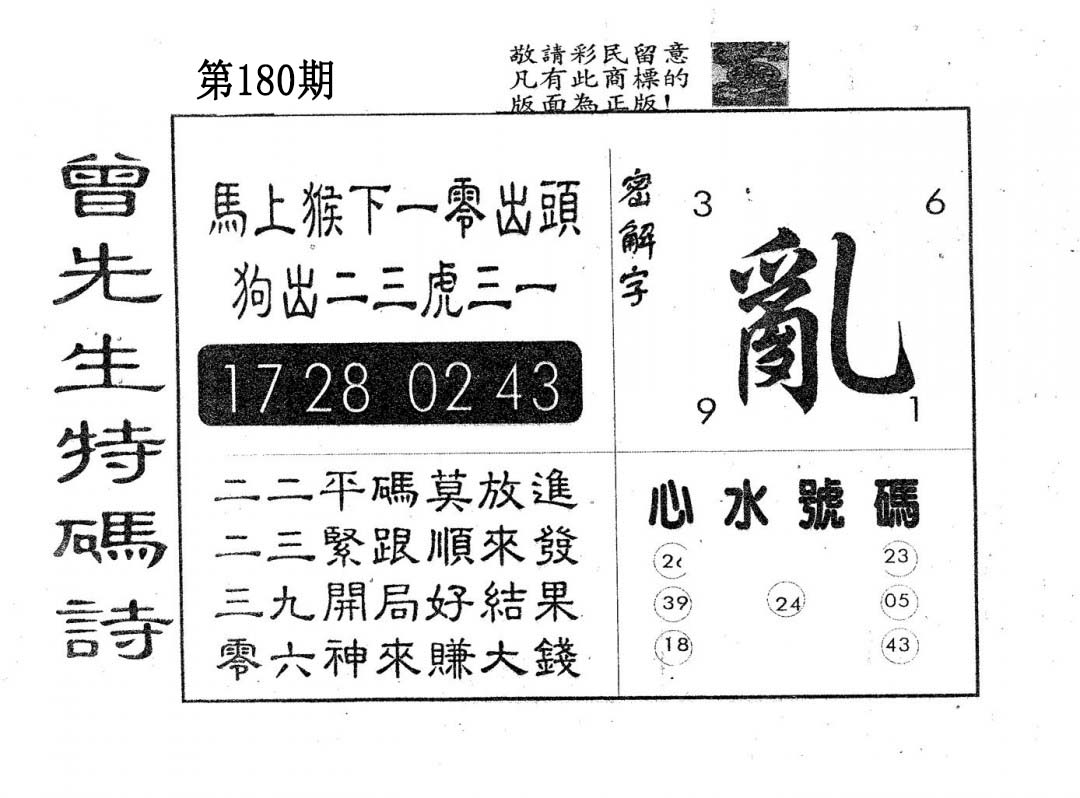 第180期
敬請彩民留意
凡有此商標的
版面為正版！
曾先生特碼詩
馬上猴下一零出頭
狗出二三虎三一
17 28 02 43
密解字
3 6
亂
9 1
二二平碼莫放進
二三緊跟順來發
三九開局好結果
零六神來賺大錢
心水號碼
26 23
39 24 05
18 43